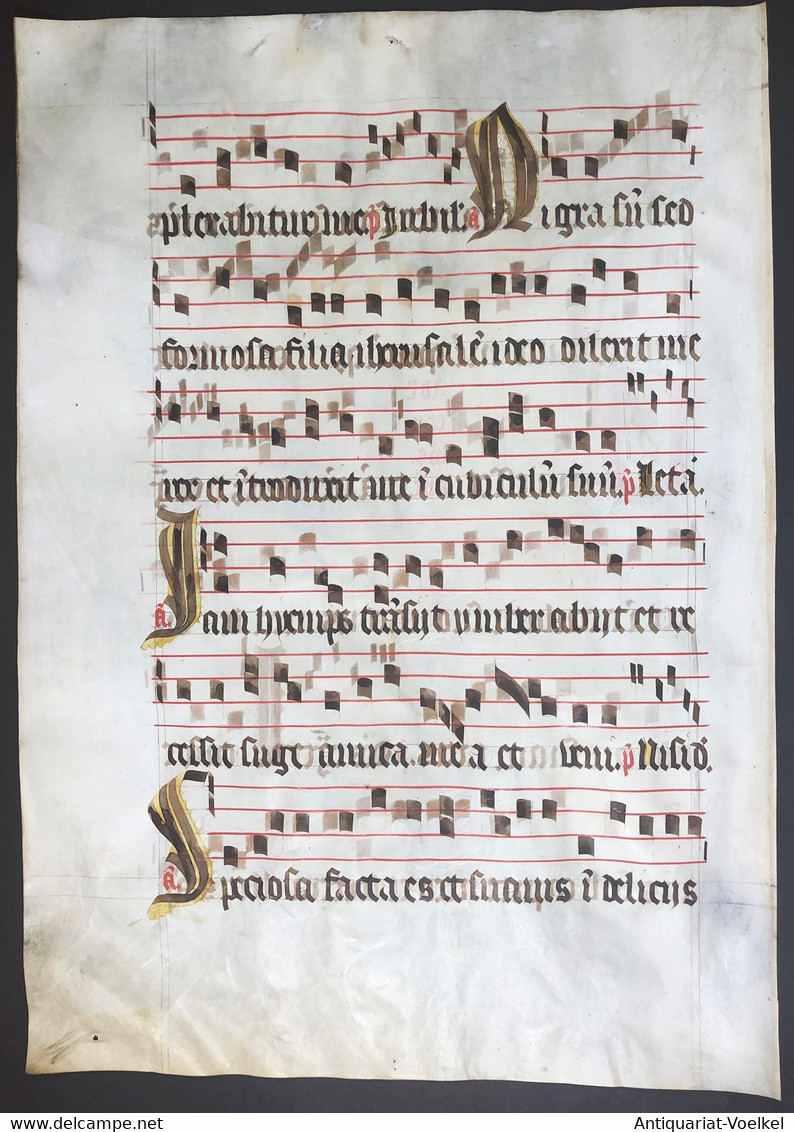 aplexabitur me p̄ Jubil. a Nigra sū sed
formosa filia iherusalē. ideo dilexit me
rex et ītroduxit me ī cubiculū suū. p̄ Leta.
ā. Jam hyemps trāsijt ymber abijt et re
cessit surge amica mea et veni. p̄ Nisi dō.
ā. Speciosa facta es et suauis ī delicijs
www.delcampe.net
Antiquariat-Voelkel